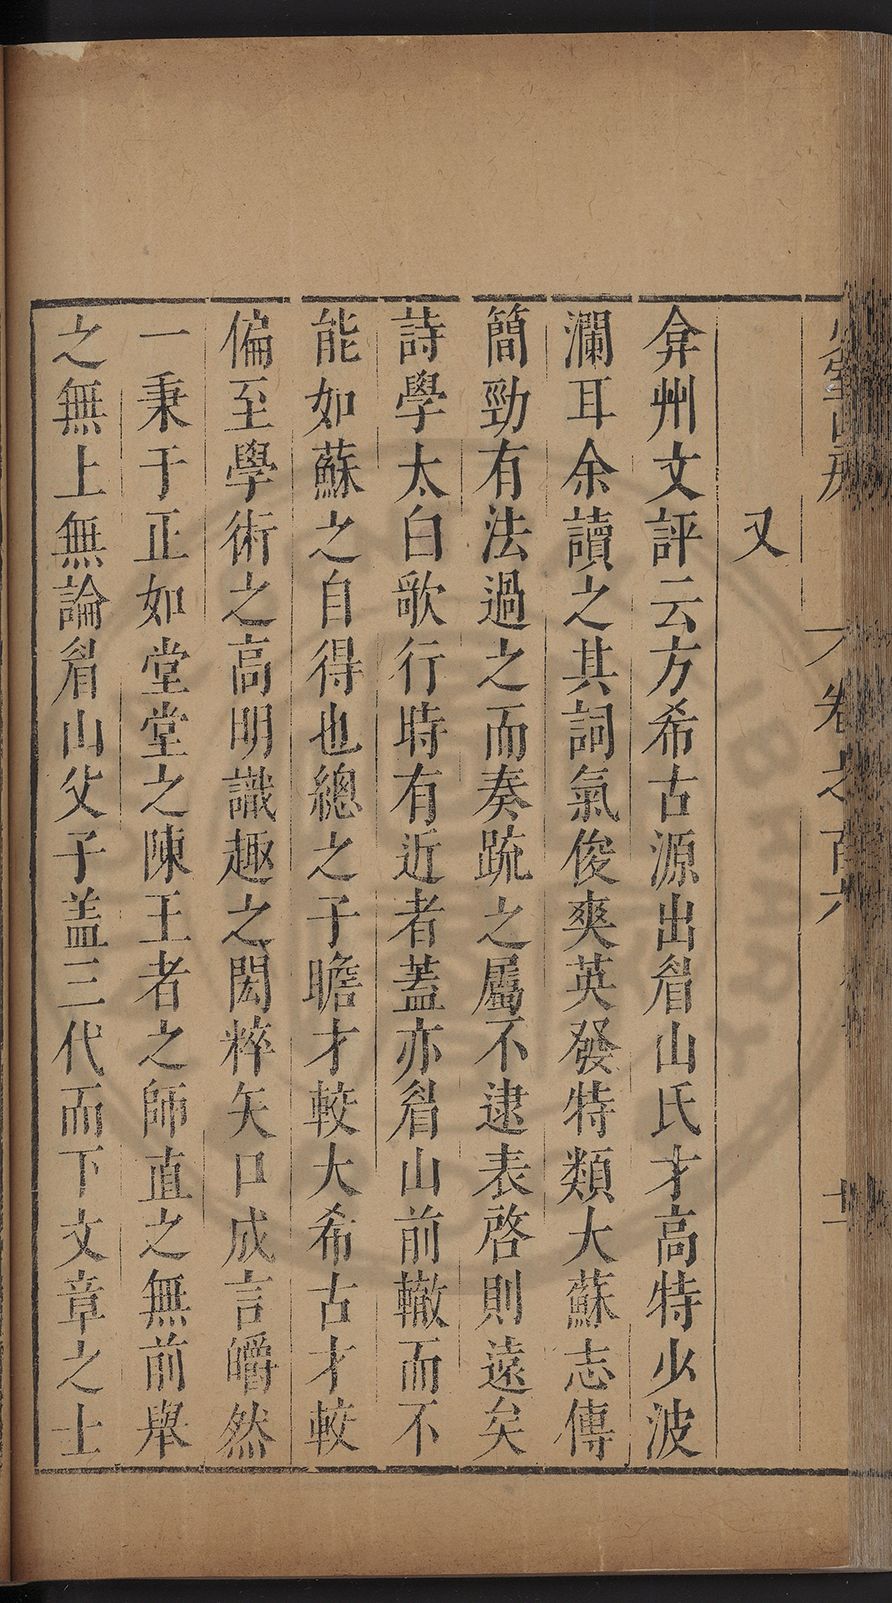 少室山房
卷之百六
又
弇州文評云方希古源出眉山氏才高特少波
瀾耳余讀之其詞氣俊爽英發特類大蘇志傳
簡勁有法過之而奏疏之屬不逮表啓則遠矣
詩學太白歌行時有近者蓋亦眉山前轍而不
能如蘇之自得也總之子瞻才較大希古才較
偏至學術之高明識趣之閎粹矢口成言皭然
一秉于正如堂堂之陳王者之師直之無前舉
之無上無論眉山父子盖三代而下文章之士